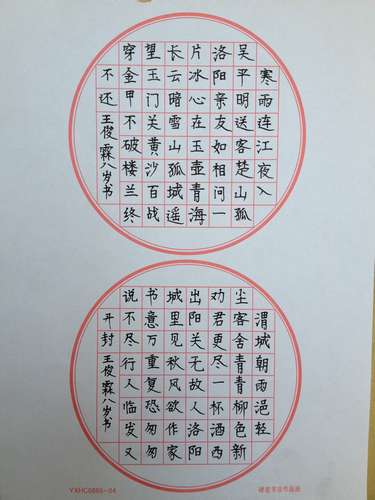 寒雨连江夜入
吴平明送客楚山孤
洛阳亲友如相问一
片冰心在玉壶青海
长云暗雪山孤城遥
望玉门关黄沙百战
穿金甲不破楼兰终
不还王俊霖八岁书
渭城朝雨浥轻
尘客舍青青柳色新
劝君更尽一杯酒西
出阳关无故人洛阳
城里见秋风欲作家
书意万重复恐匆匆
说不尽行人临发又
开封王俊霖八岁书